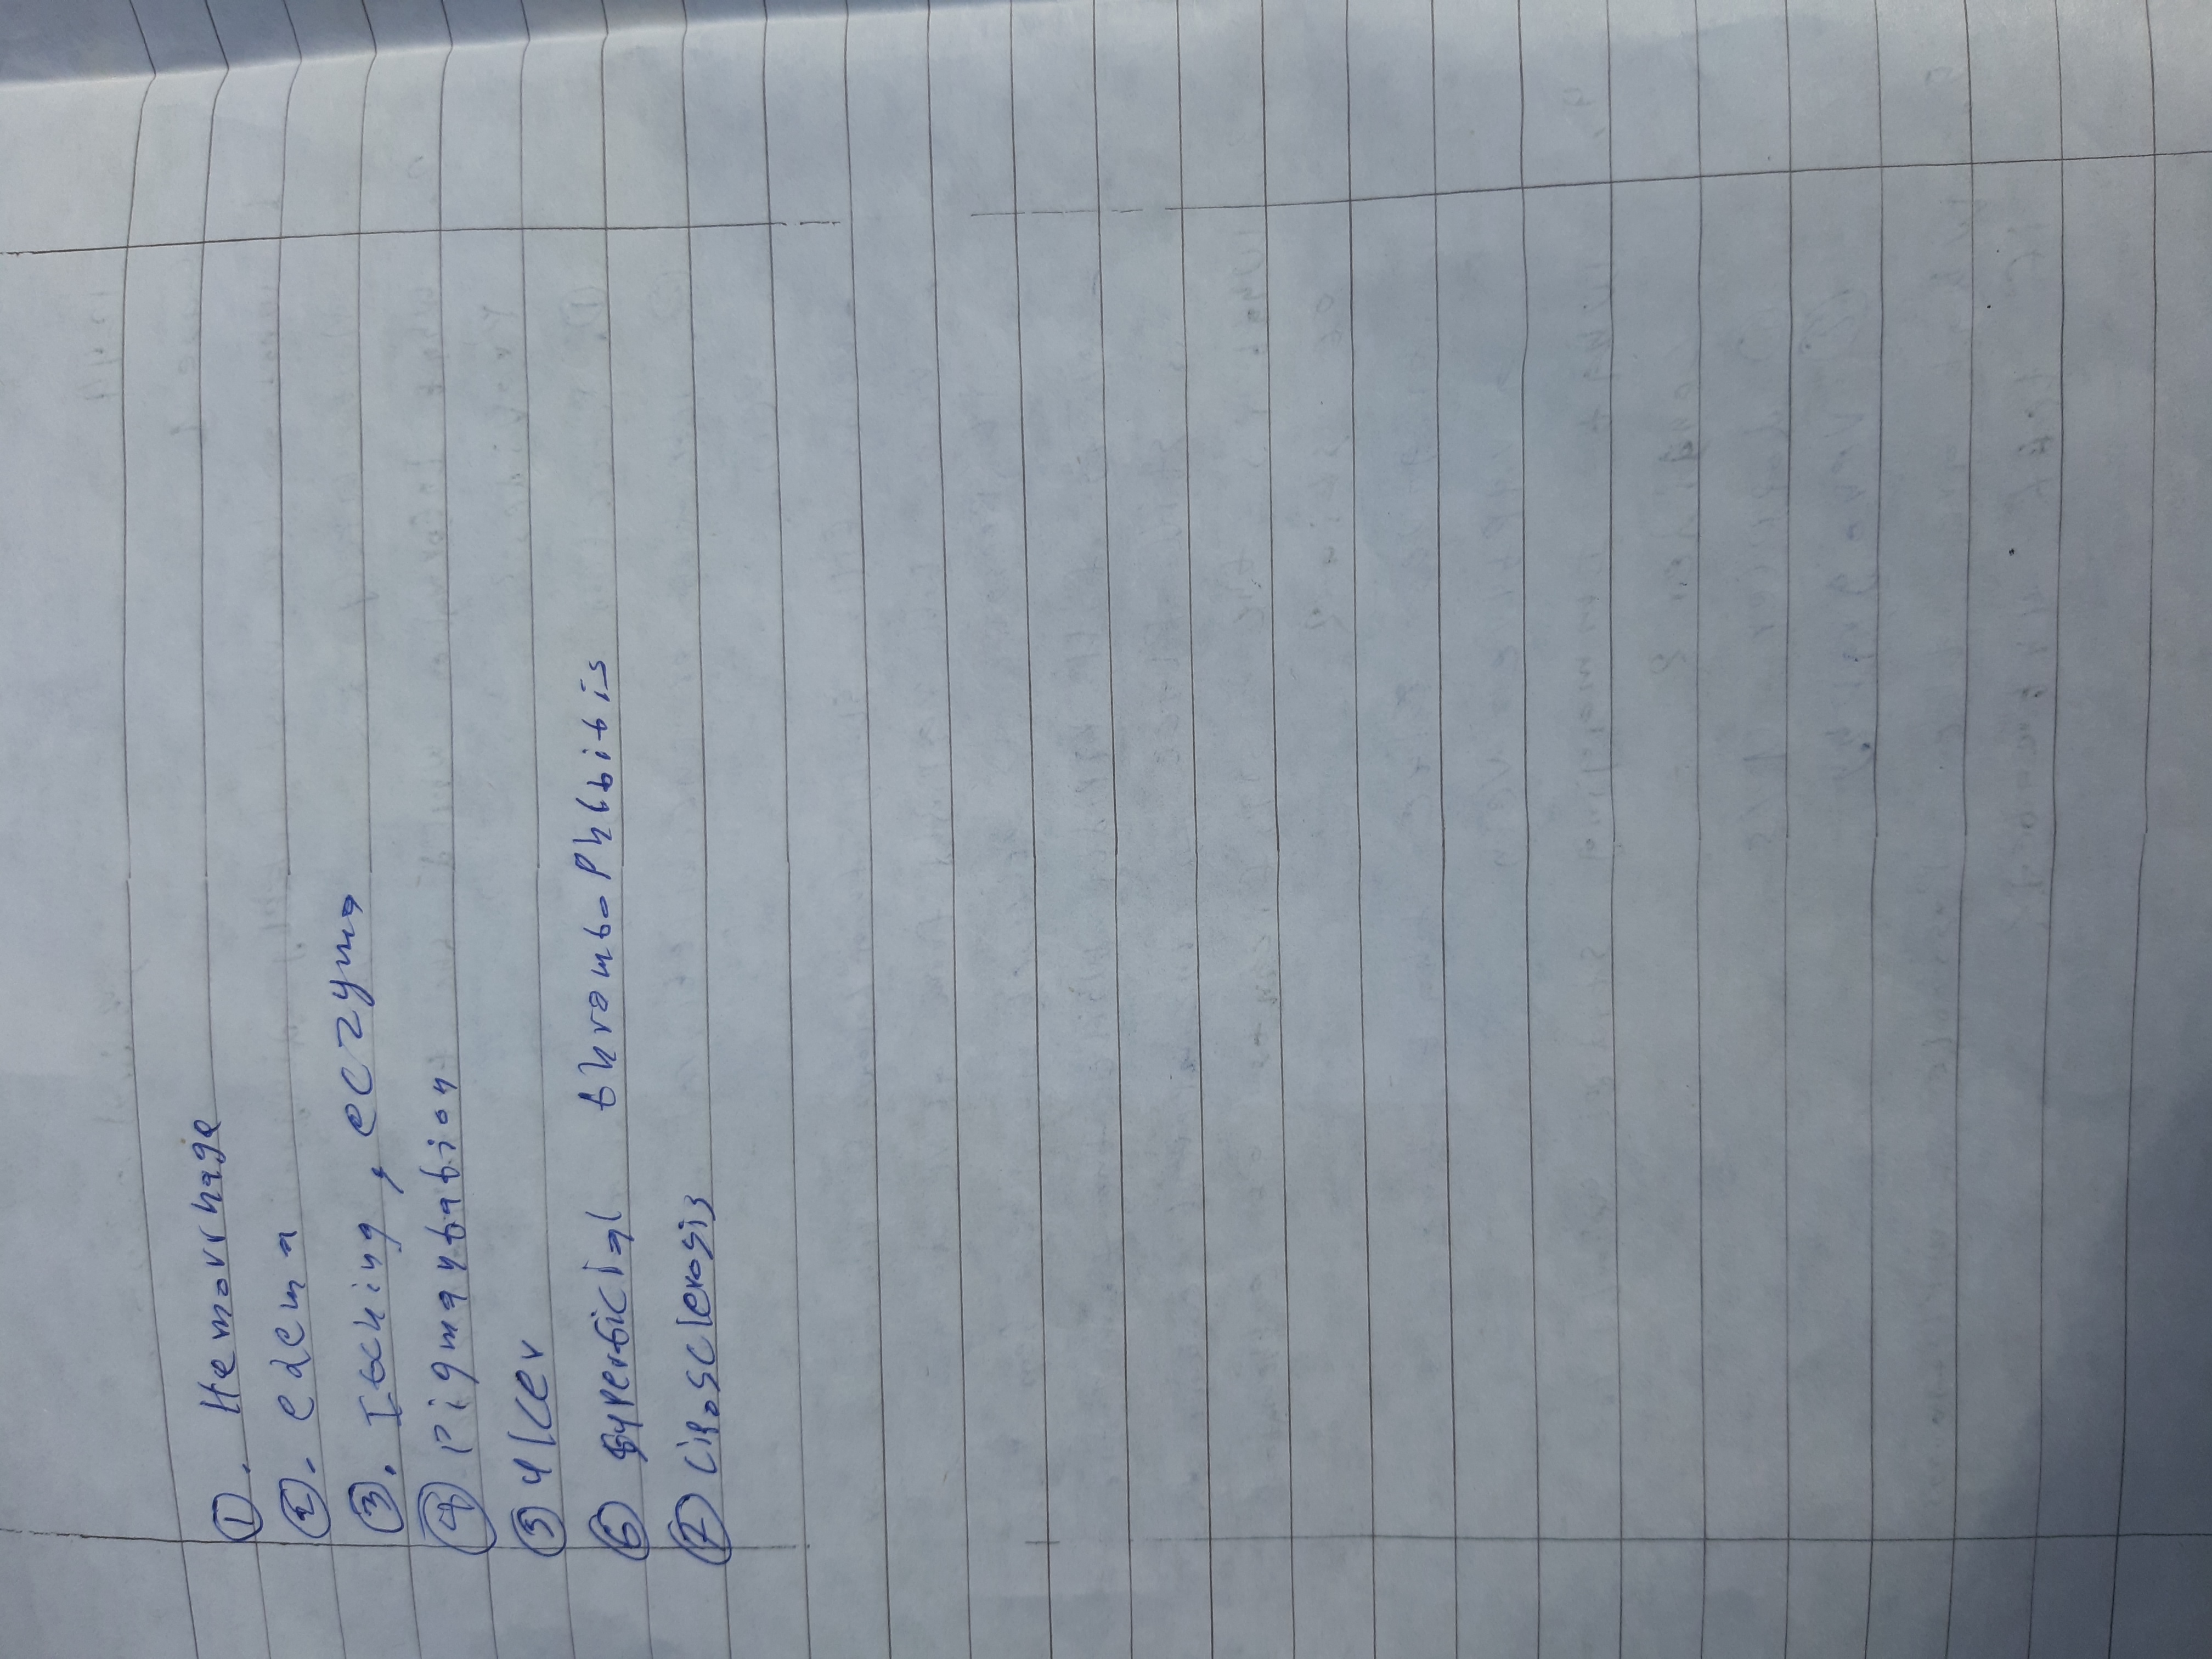 ①. Hemorrhage
②. edema
③. Itching, eczyma
④ Pigmantation
⑤ ulcer
⑥ superficial thrombophlbitis
⑦ Liposclerosis